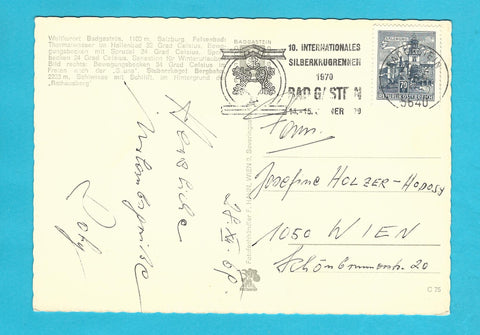 Weltkurort Badgastein, 1100 m, Salzburg. Felsenbad:
Thermalwasser im Hallenbad 32 Grad Celsius. Bewe-
gungsbecken mit Sprudel 34 Grad Celsius. Bewegungs-
becken 24 Grad Celsius, Sensation für Winterurlauber.
Bild rechts: Bewegungsbecken 34 Grad Celsius im
Freien
Stubnerkogel Bergstation
im Hintergrund der
BADGASTEIN
10. INTERNATIONALES
SILBERKRUGRENNEN
1970
BAD GASTEIN
5640
Herzliche
Urlaubsgrüße
28. XII. 69.
Fam.
Josefine HOLZER-HODOSY
1050 WIEN
Schönbrunnerstr. 20
C 75